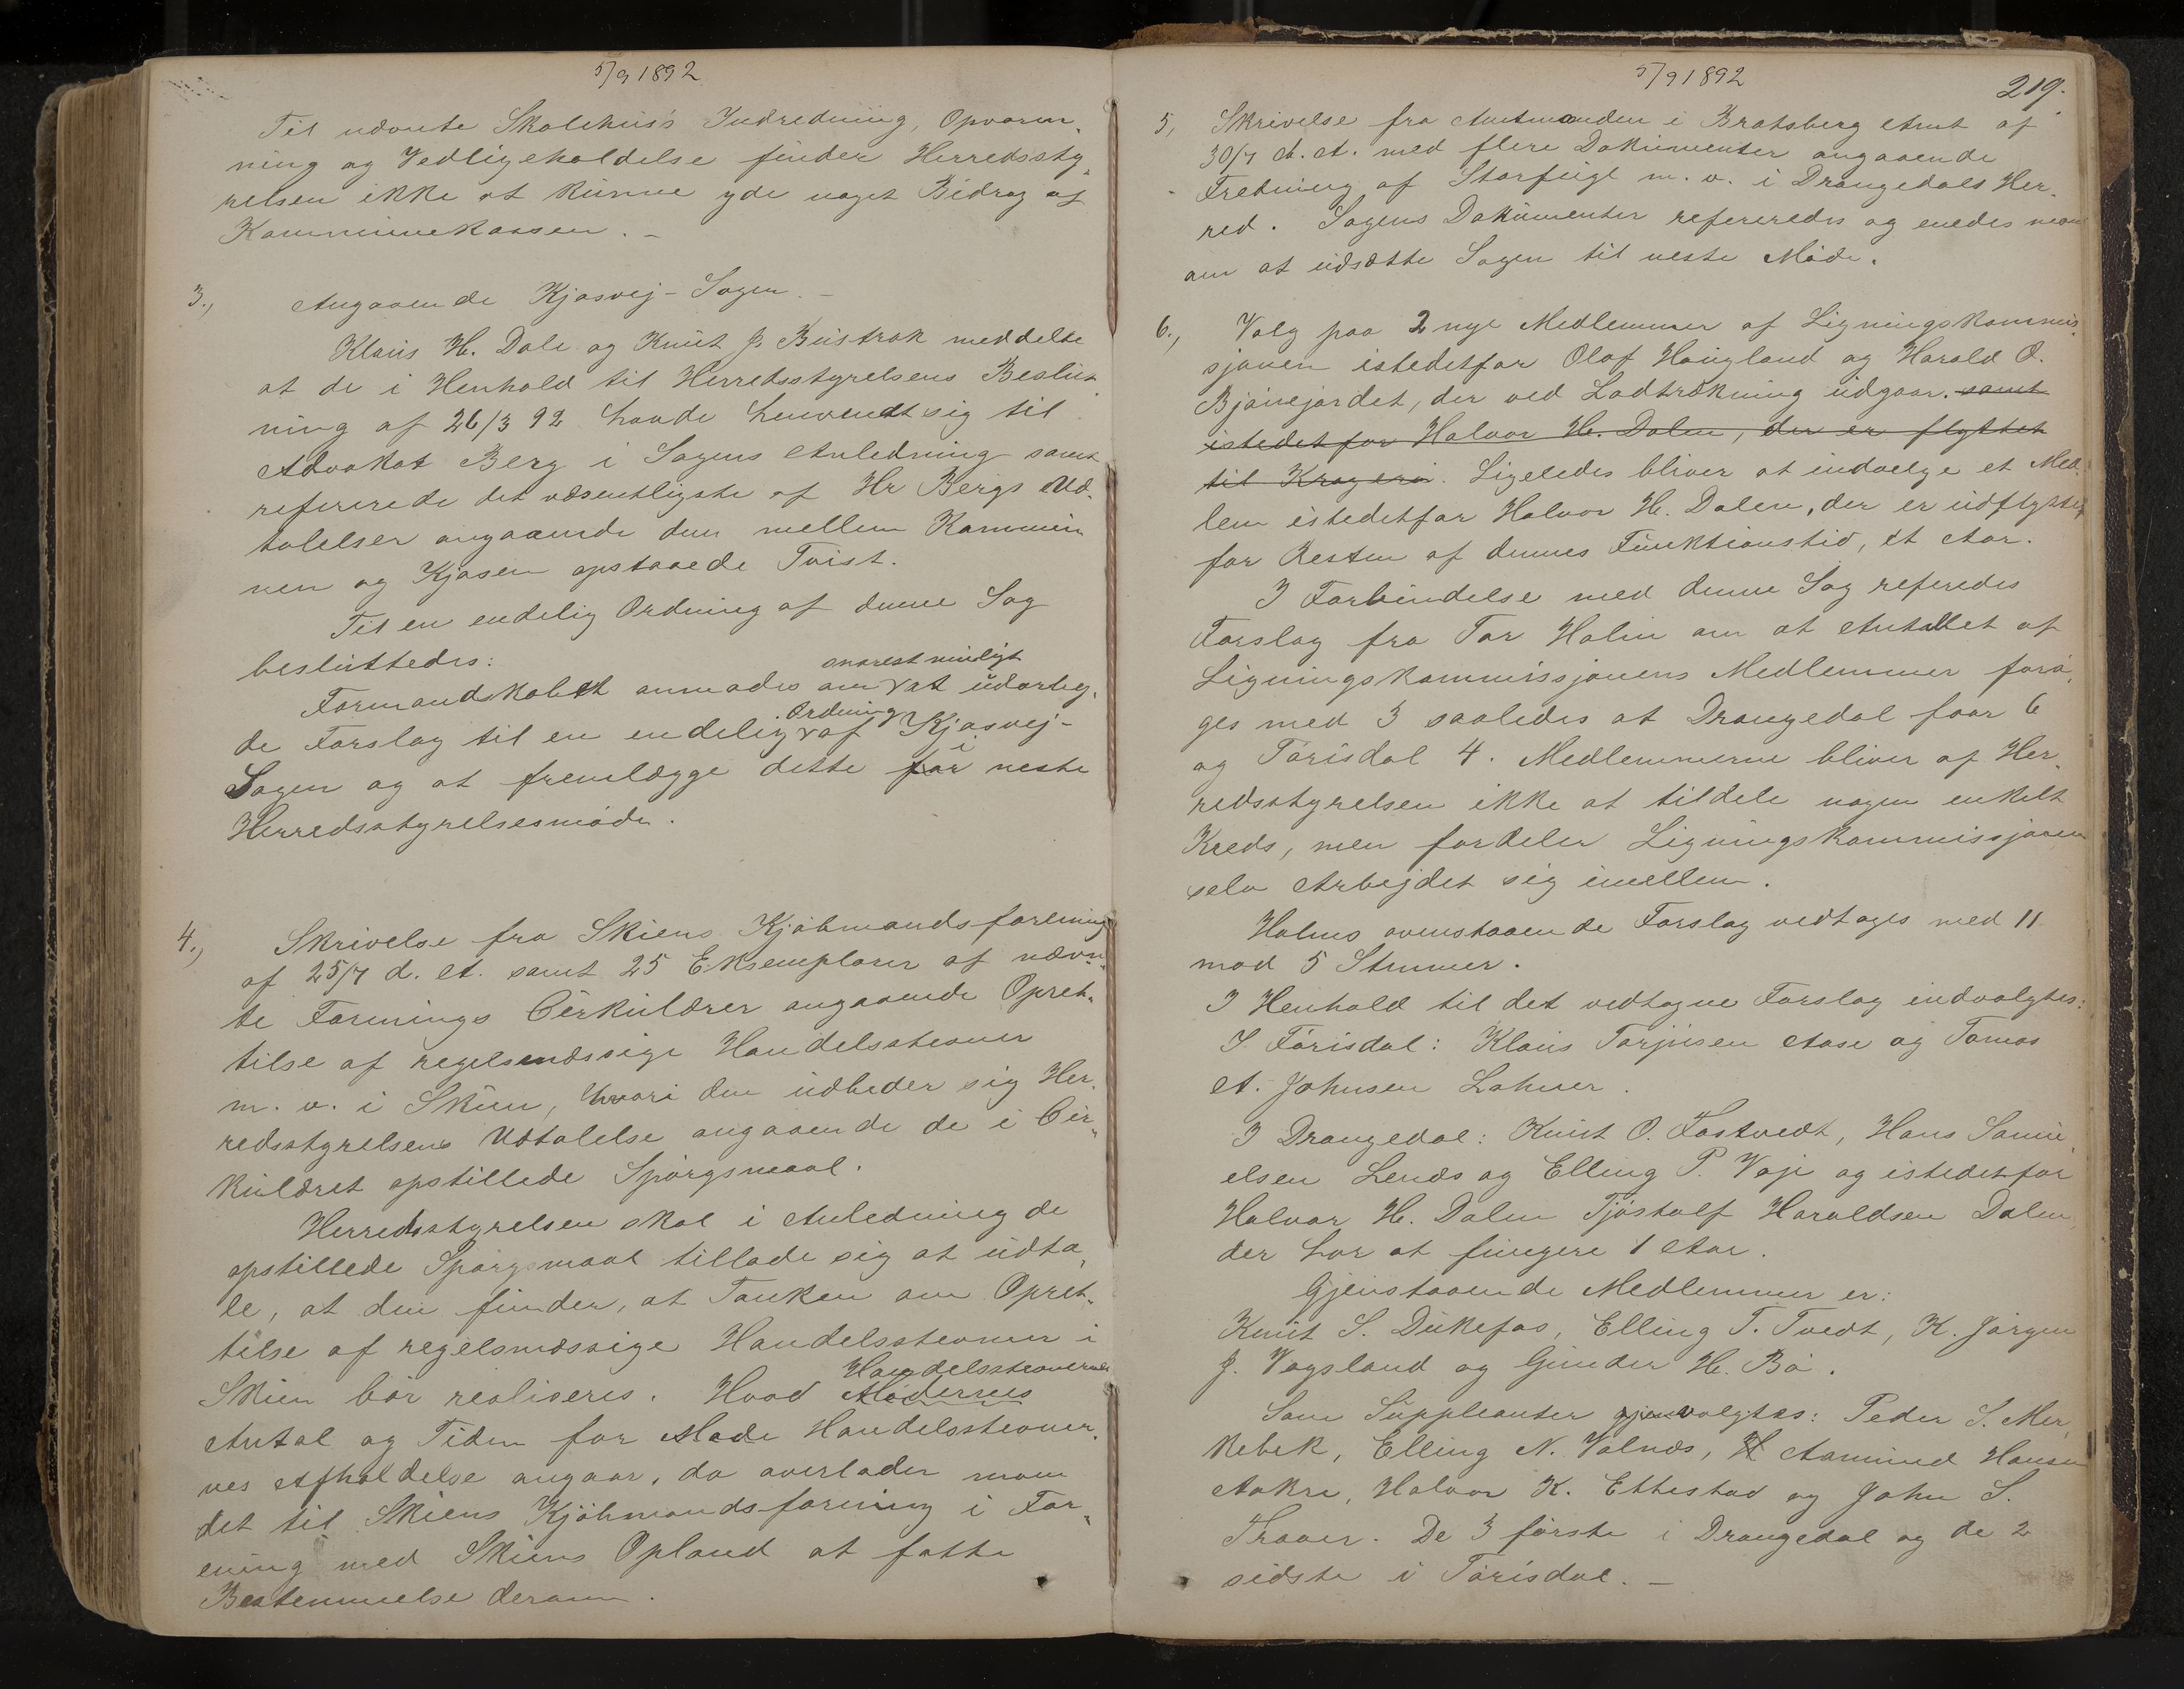 5/9 1892
Til nævnte Skolehus's Indredning, Opvarm„
ning og Vedligeholdelse finder Herredssty„
relsen ikke at kunne yde noget Bidrag af
Kommunekassen. —
3., Angaaende Kjosvej-Sagen. —
Klaus H. Dale og Knut J. Bustrak meddelte
at de i Henhold til Herredsstyrelsens Beslut„
ning af 26/3 92 havde henvendt sig til
Advokat Berg i Sagens Anledning samt
refererede det væsentligste af Hr Bergs Ud„
talelser angaaende den mellem Kommu„
nen og Kjosen opstaaede Tvist.
Til en endelig Ordning af denne Sag
besluttedes:
snarest muligt
Formandskabet anmodes om at udarbej„
Ordning
de Forslag til en endelig af Kjosvej-
i
Sagen og at fremlægge dette for neste
Herredsstyrelsesmöde.
4., Skrivelse fra Skiens Kjöbmandsforening
af 25/7 d. A. samt 25 Eksemplarer af nævn„
te Forenings Cirkulærer angaaende Opret„
telse af regelsmæssige Handelsstevner
m. v. i Skien, hvori den udbeder sig Her„
redsstyrelsens Udtalelse angaaende de i Cir„
kulæret opstillede Spörgsmaal.
Herredsstyrelsen skal i Anledning de
opstillede Spörgsmaal tillade sig at udta„
le, at den finder, at Tanken om Opret„
telse af regelsmæssige Handelsstevner i
Handelsstevnernes
Skien bör realiseres. Hvad Mödernes
Antal og Tiden for Handelsstevner„
nes Afholdelse angaar, da overlader man
det til Skiens Kjöbmandsforening i For„
ening med Skiens Opland at fatte
Bestemmelse derom.
5/9 1892
219.
5, Skrivelse fra Amtmanden i Bratsberg Amt af
30/7 d. A. med flere Dokumenter angaaende
Fredning af Storfugl m. v. i Drangedals Her„
red. Sagens Dokumenter refereredes og enedes man
om at udsætte Sagen til neste Möde.
6., Valg paa 2 nye Medlemmer af Ligningskommis„
sjonen istedetfor Olaf Haugland og Harald O.
Bjönnejordet, der ved Lodtrækning udgaar. samt
istedetfor Halvor H. Dalen, der er flyttet
til Kragerö. Ligeledes bliver at indvælge et Med„
lem istedetfor Halvor H. Dalen, der er udflyttet
for Resten af dennes Funktionstid, et Aar.
I Forbindelse med denne Sag referedes
Forslag fra Tor Holm om at Antallet af
Ligningskommissjonens Medlemmer forö„
ges med 3 saaledes at Drangedal faar 6
og Törisdal 4. Medlemmerne bliver af Her„
redsstyrelsen ikke at tildele nogen enkelt
Kreds, men fordeler Ligningskommissjonen
selv Arbejdet sig imellem.
Holms ovenstaaende Forslag vedtoges med 11
mod 5 Stemmer.
I Henhold til det vedtagne Forslag indvalgtes:
I Törisdal: Klaus Torjusen Aase og Tomas
A. Johnsen Lahner.
I Drangedal: Knut O. Fostvedt, Hans Samu„
elsen Lenæs og Elling P. Voje og istedetfor
Halvor H. Dalen Tjöstolf Haraldsen Dalen,
der har at fungere 1 Aar.
Gjenstaaende Medlemmer er:
Knut S. Dukefos, Elling T. Tvedt, K. Jörgen
J. Vogsland og Gunder H. Bö.
Som Suppleanter gjenvalgtes: Peder S. Mer„
kebek, Elling N. Valnæs, Aamund Hansen
Aakre, Halvor K. Ettestad og John S.
Traaen. De 3 förste i Drangedal og de 2
sidste i Törisdal. —